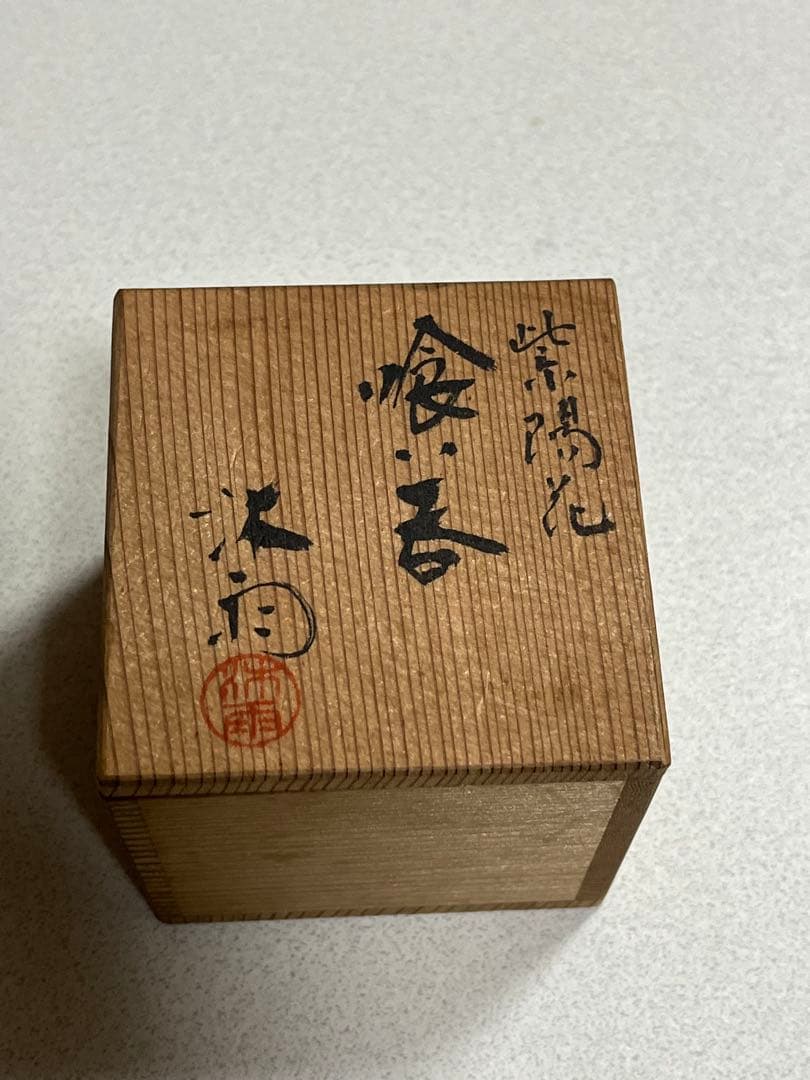 紫陽花
喰い呑
沐雨
沐雨